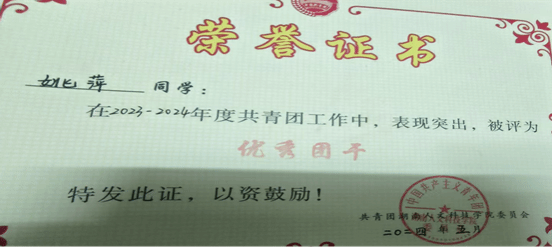 荣誉证书
萍 同学：
在2023-2024年度共青团工作中，表现突出，被评为
优秀团干
特发此证，以资鼓励！
共青团湖南人文科技学院委员会
二〇二四年五月